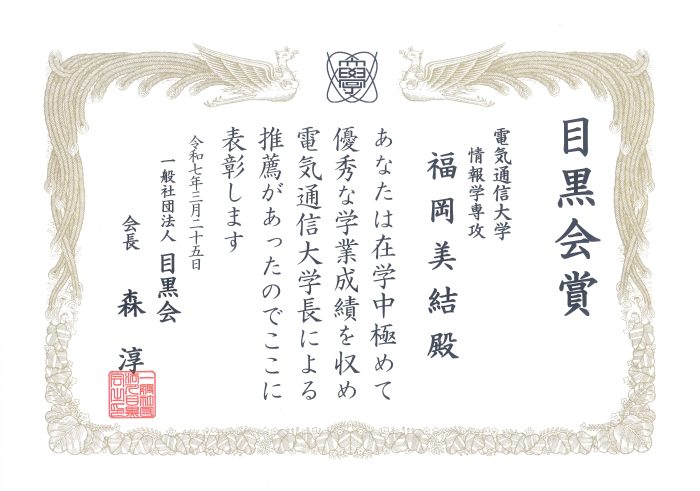 目黒会賞
電気通信大学
情報学専攻
福岡美結殿
あなたは在学中極めて
優秀な学業成績を収め
電気通信大学長による
推薦があったのでここに
表彰します
令和七年三月二十五日
一般社団法人 目黒会
会長 森淳